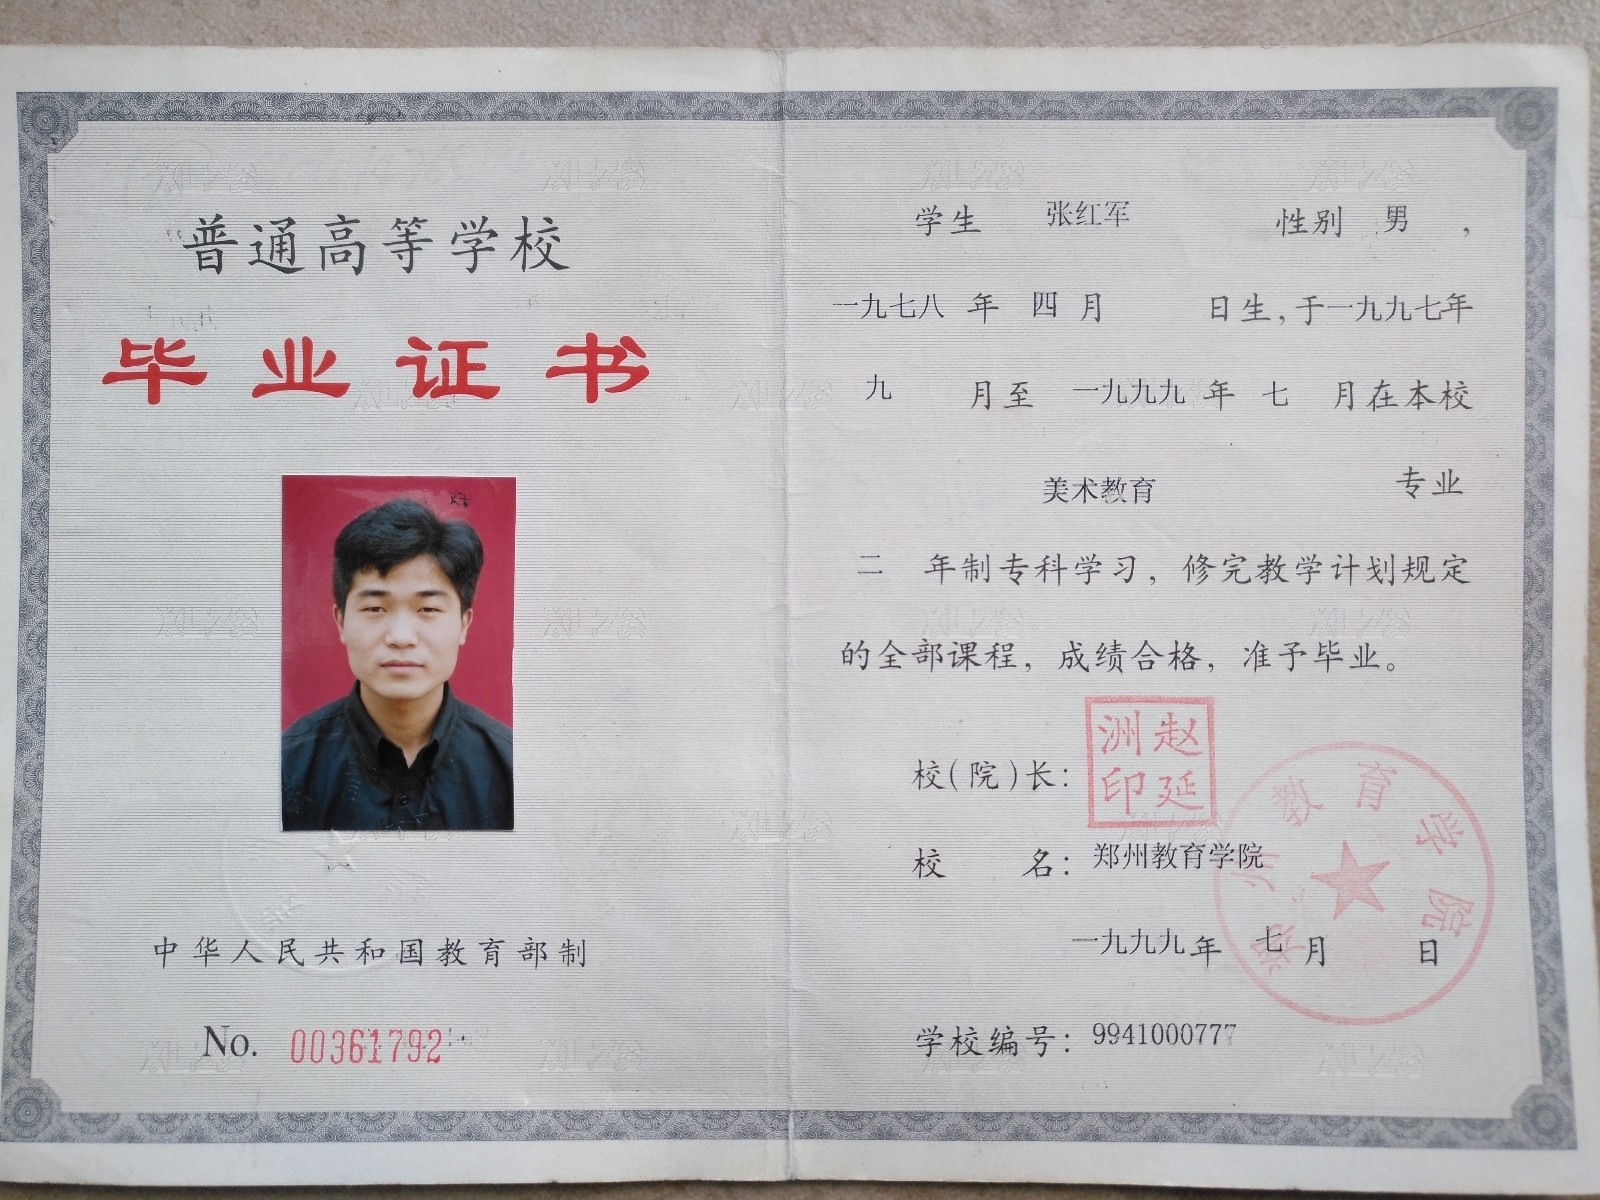 普通高等学校
毕业证书
中华人民共和国教育部制
No. 00361792
学生 张红军 性别 男 ，
一九七八 年 四 月 日生，于一九九七年
九 月至 一九九九 年 七 月在本校
美术教育 专业
二 年制专科学习，修完教学计划规定
的全部课程，成绩合格，准予毕业。
校(院)长：
赵延洲印
校 名：郑州教育学院
郑州教育学院
一九九九年 七 月 日
学校编号：9941000777